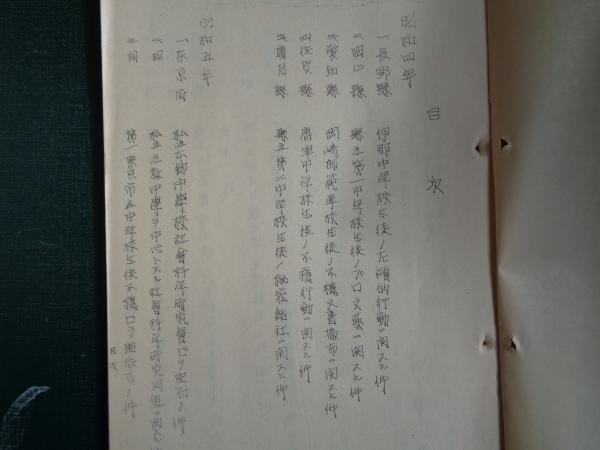 目次
昭和四年
一、長野縣 伊那中学校生徒ノ左傾的行動ニ関スル件
二、岡山縣 縣立第一中学校生徒ノプロ文藝ニ関スル件
三、愛知縣 岡崎師範学校生徒ノ不穏文書撒布ニ関スル件
四、佐賀縣 唐津中学校生徒ノ不穏行動ニ関スル件
五、廣島縣 縣立第二中学校生徒ノ秘密結社ニ関スル件
昭和五年
一、東京府 私立本郷中學校社會科学研究會ビラ配布ノ件
二、同 私立立教中學ヲ中心トスル社會科学研究同盟ニ関スル
三、同 第一東京市立中学校生徒不穏ビラ撒布ノ件
目次